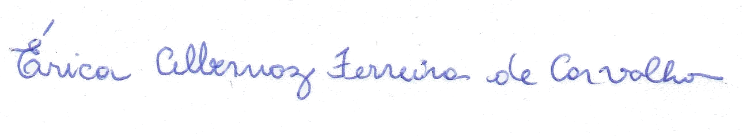 Érica Albernoz Ferreira de Carvalho